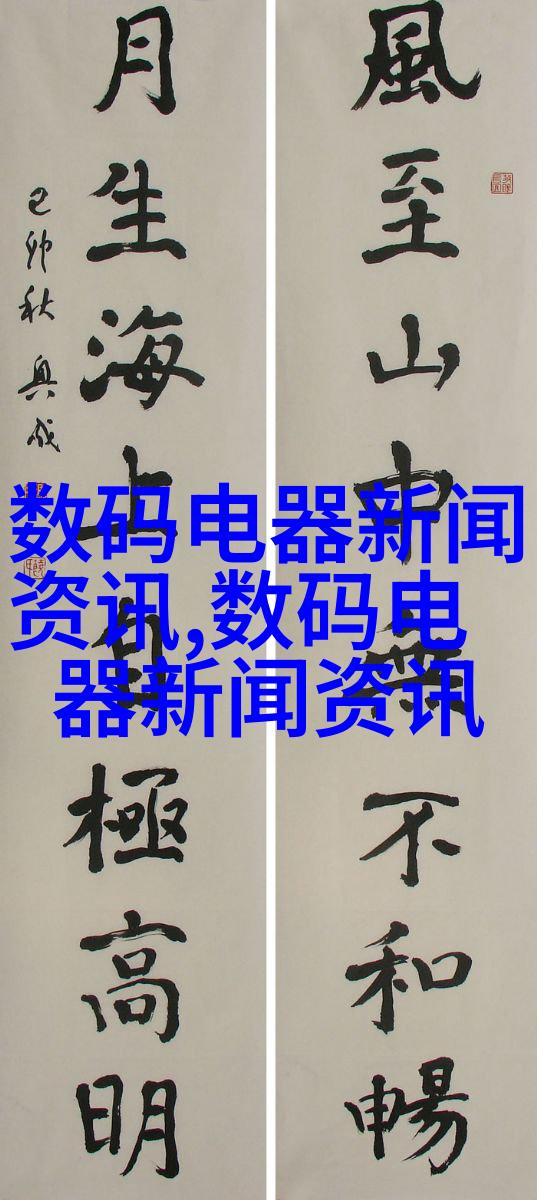 風至山中無不和暢
月生海上自極高明
己卯秋 興成
数码电器新闻
资讯,数码电
器新闻资讯